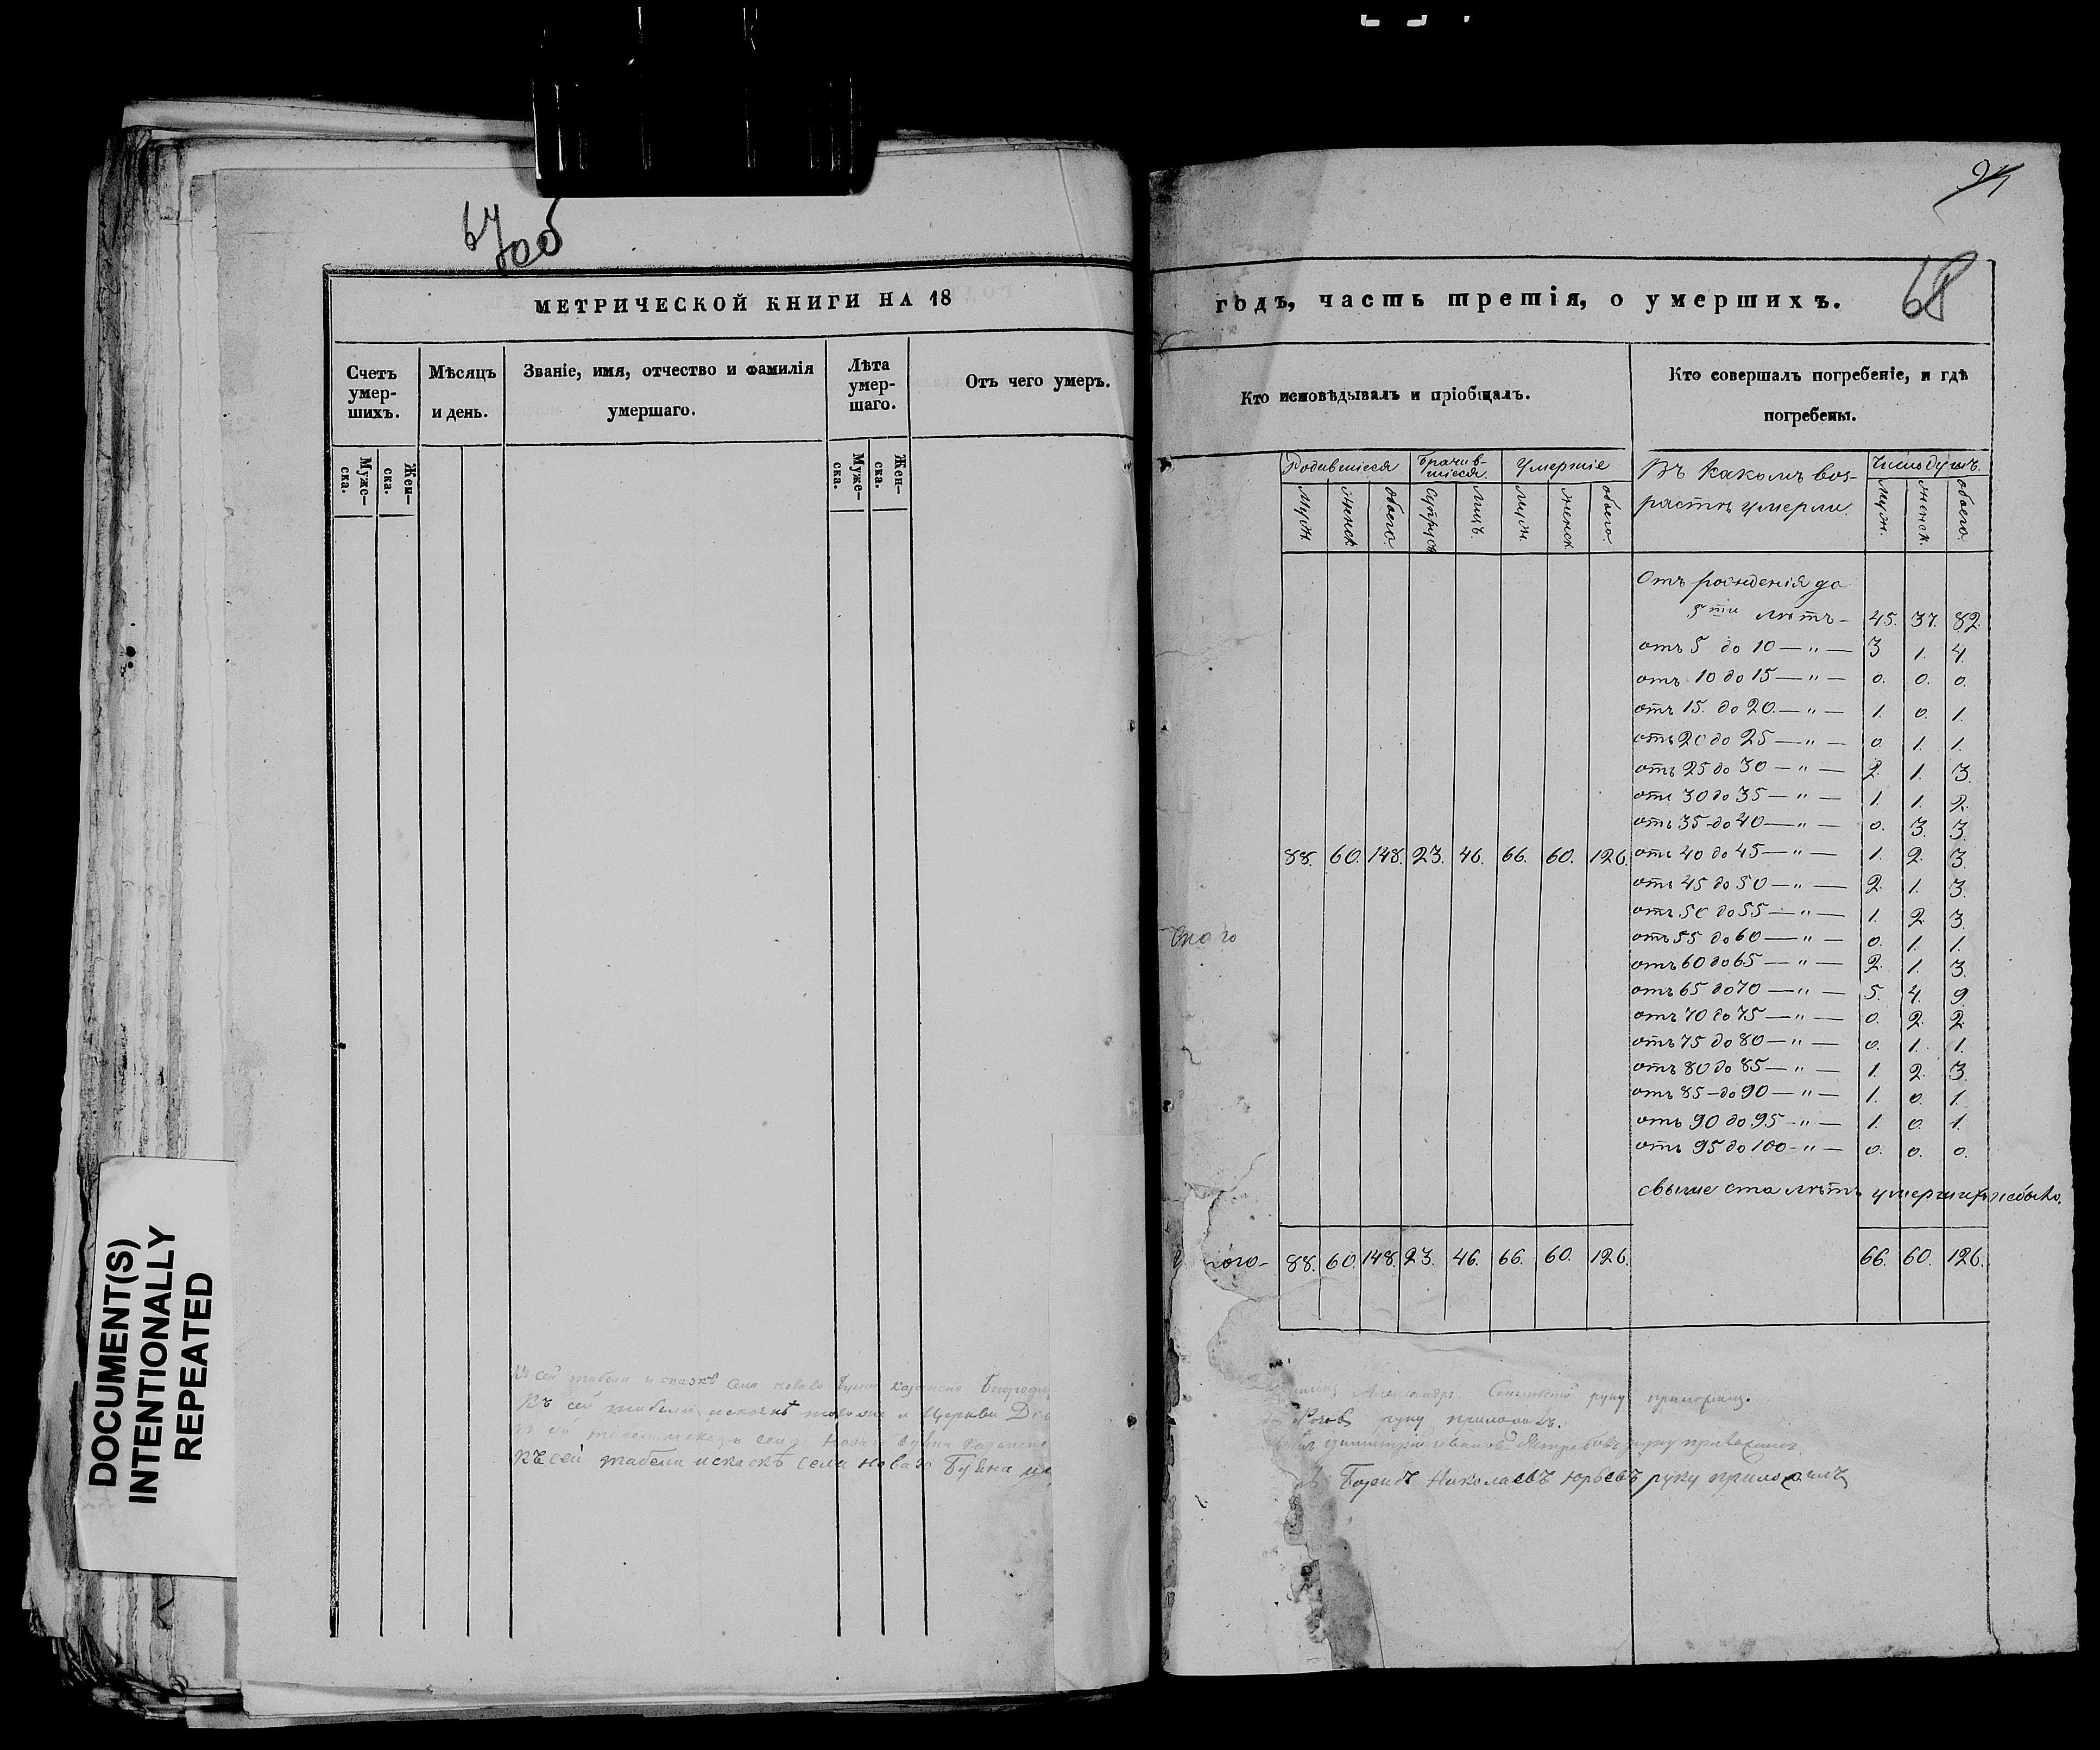 67об
МЕТРИЧЕСКОЙ КНИГИ НА 18
Счетъ умер-шихъ.
Муже-ска.
Жен-ска.
Мѣсяцъ и день.
Званіе, имя, отчество и фамилія
умершаго.
Лѣта умер-шаго.
Муже-ска.
Жен-ска.
Отъ чего умеръ.
Къ сей табели и сказкѣ села новаго Буяна
Къ сей табели и церкви
Къ сей табели села новаго Буяна
Къ сей табели и сказкѣ села новаго Буяна
DOCUMENT(S)
INTENTIONALLY
REPEATED
68
годъ, часть третія, о умершихъ.
Кто исповѣдывалъ и пріобщалъ.
Кто совершалъ погребеніе, и гдѣ
погребены.
Родившіеся
Брачив-шіеся
Умершіе
Въ какомъ воз-
растѣ умерли.
Число душъ.
муж. женск. обоего. супруж лицъ. муж. женск. обоего.
муж. женск. обоего.
Отъ рожденія до
5ти лѣтъ- 45. 37. 82.
отъ 5 до 10 — " — 3 1. 4.
отъ 10 до 15 — " — 0. 0. 0.
отъ 15. до 20. — " — 1. 0. 1.
отъ 20 до 25 — " — 0. 1. 1.
отъ 25 до 30 — " — 2. 1. 3.
отъ 30 до 35 — " — 1. 1. 2.
отъ 35 до 40 — " — 0. 3. 3.
88. 60. 148. 23. 46. 66. 60. 126. отъ 40 до 45 — " — 1. 2. 3
отъ 45 до 50 — " — 2. 1. 3.
отъ 50 до 55 — " — 1. 2. 3
отъ 55 до 60 — " — 0. 1. 1.
отъ 60 до 65 — " — 2. 1. 3.
отъ 65 до 70 — " — 5. 4. 9.
отъ 70 до 75 — " — 0. 2. 2.
отъ 75 до 80 — " — 0. 1. 1.
отъ 80 до 85 — " — 1. 2. 3.
отъ 85 до 90 — " — 1. 0. 1.
отъ 90 до 95 - " — 1. 0. 1.
отъ 95 до 100 - " — 0. 0. 0.
свыше ста лѣтъ умершихъ небыло.
88. 60. 148. 23. 46. 66. 60. 126. 66. 60. 126.
Александръ руку приложилъ.
руку приложилъ.
Димитрій Ивановъ Ястребовъ руку приложилъ
Николаевъ Юрьевъ руку приложилъ